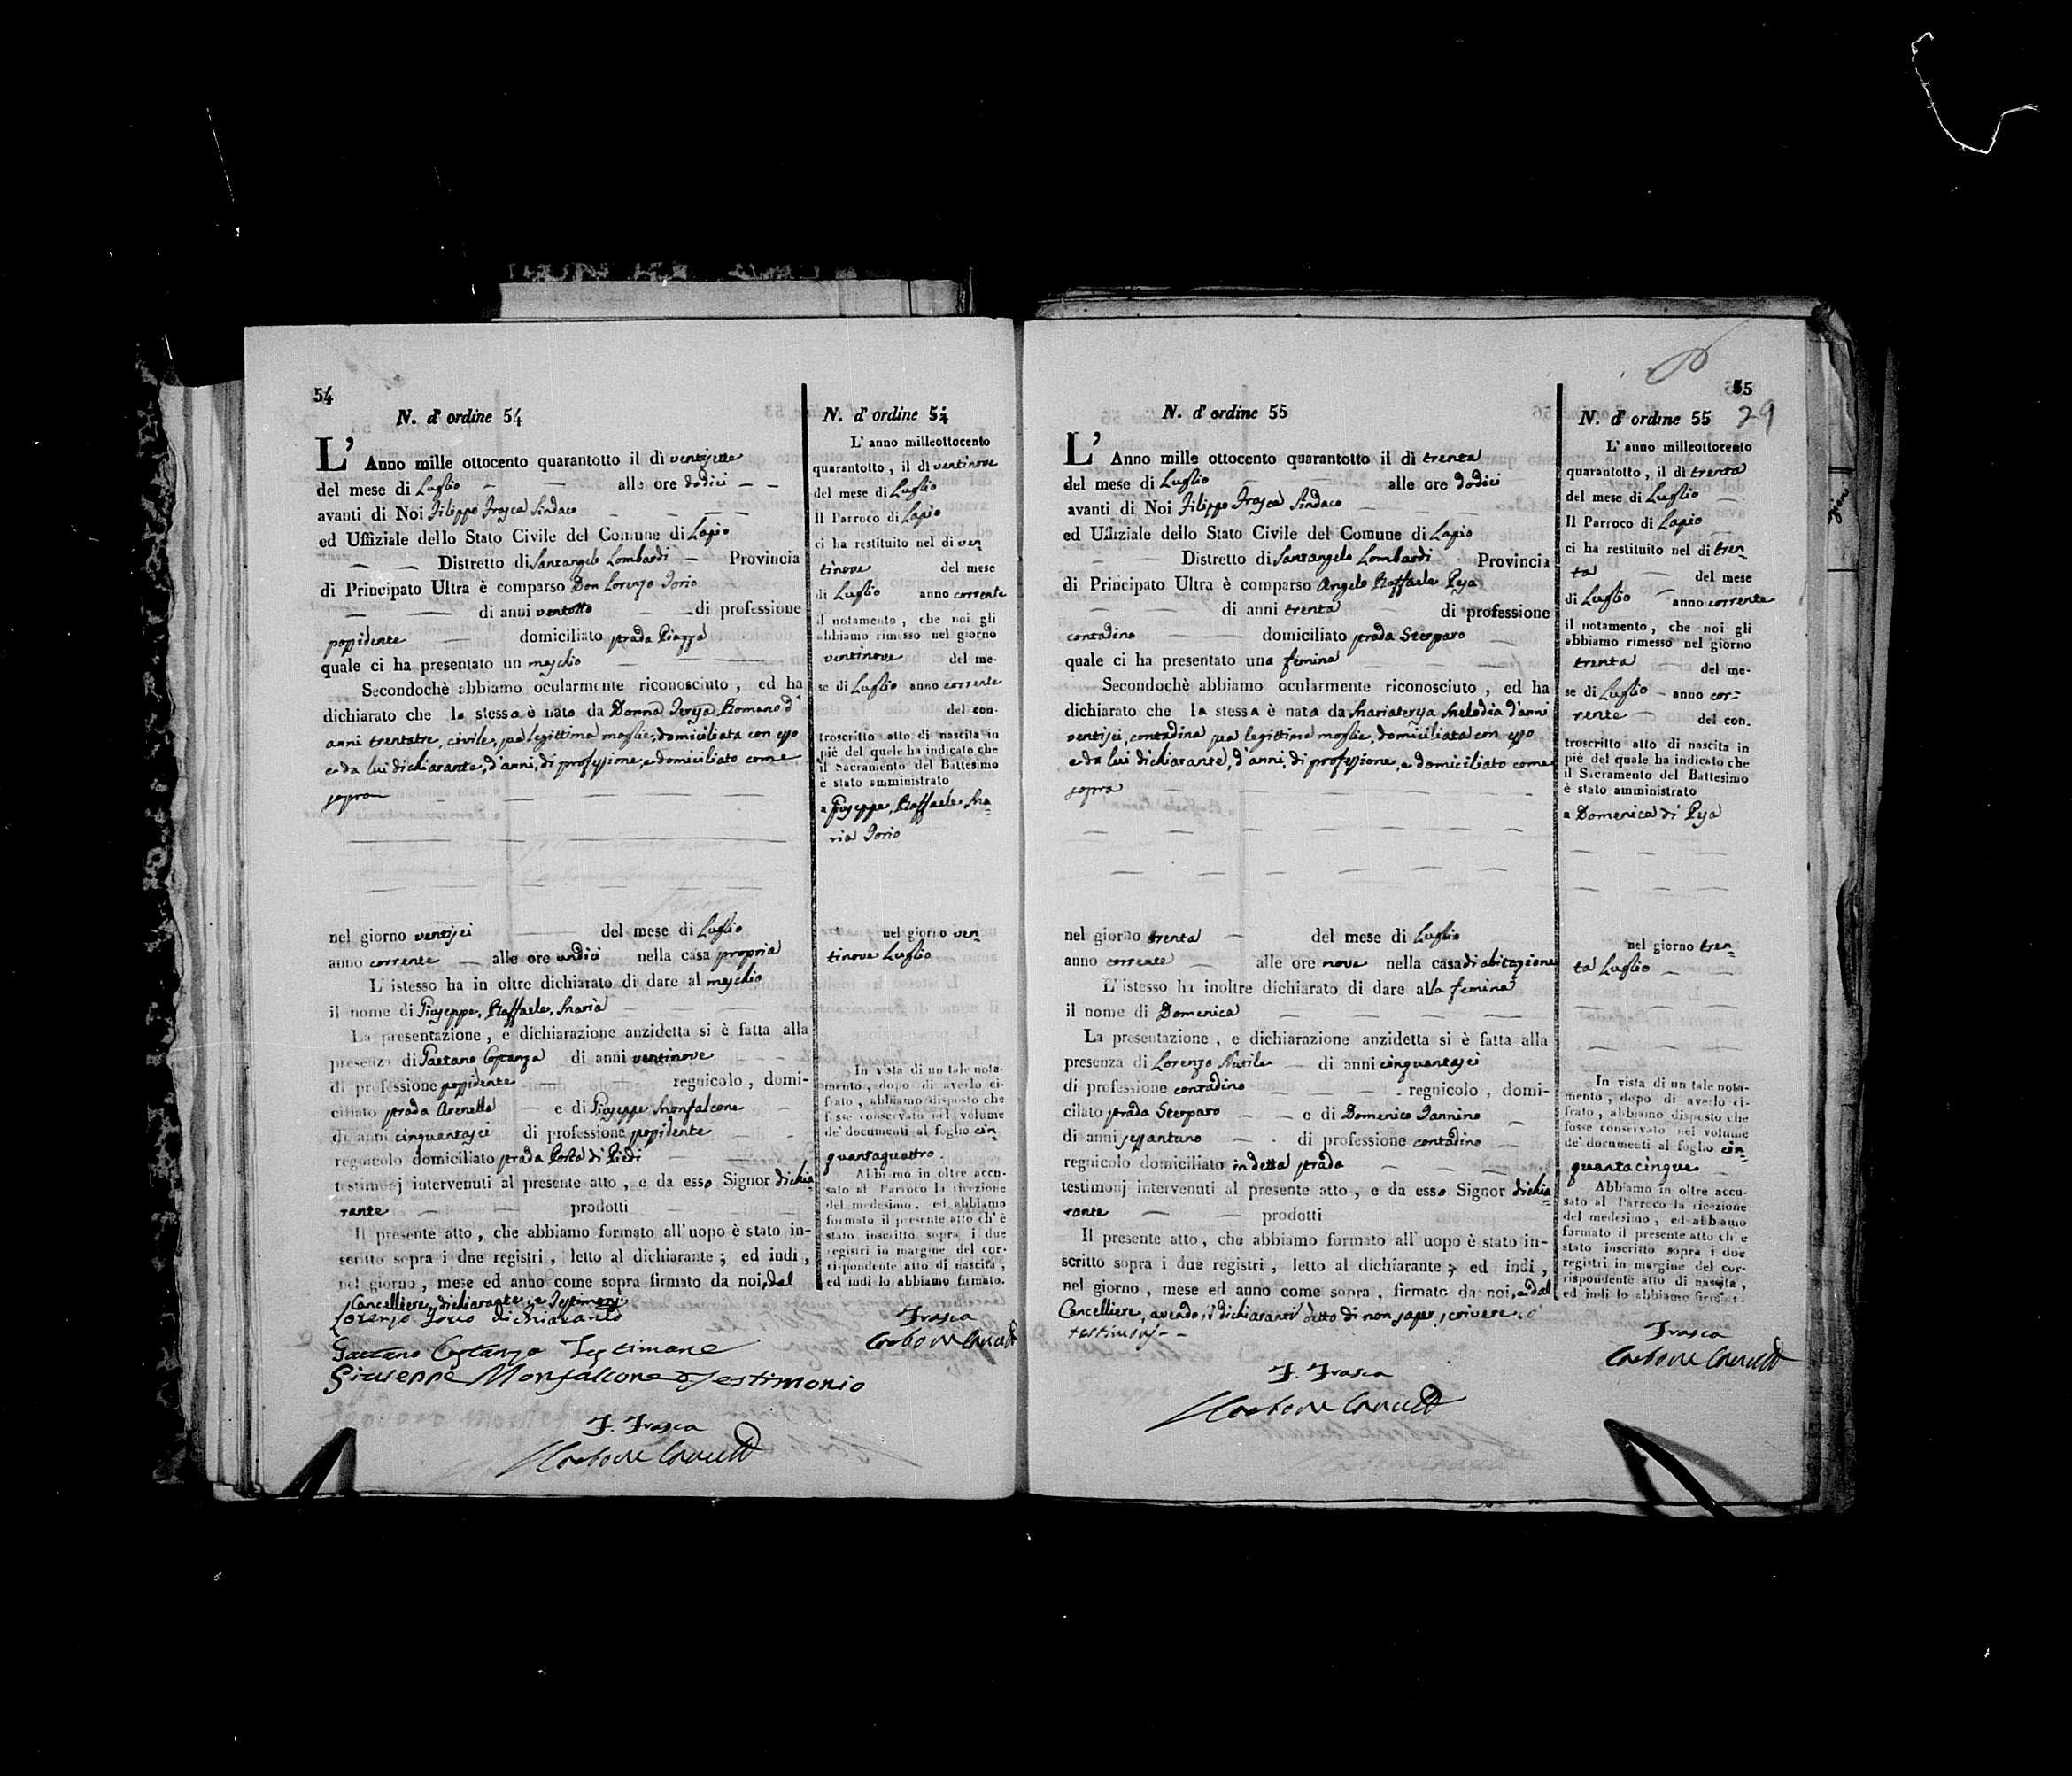 54
N. d' ordine 54
L' Anno mille ottocento quarantotto il dì ventisette
del mese di Luglio — — alle ore dodici — —
avanti di Noi Filippo Frasca Sindaco
ed Uffiziale dello Stato Civile del Comune di Lapio
— — Distretto di Santangelo Lombardi — Provincia
di Principato Ultra è comparso Don Lorenzo Iorio
— di anni ventotto — di professione
possidente — domiciliato strada Piazza
quale ci ha presentato un maschio
Secondochè abbiamo ocularmente riconosciuto, ed ha
dichiarato che lo stesso è nato da Donna Teresa Romano d'
anni trentatre, civile, sua legittima moglie, domiciliata con esso
e da lui dichiarante, d'anni, di professione, e domiciliato come
sopra
nel giorno ventisei — del mese di Luglio
anno corrente — alle ore undici nella casa propria
L' istesso ha in oltre dichiarato di dare al maschio
il nome di Giuseppe, Raffaele, Maria
La presentazione, e dichiarazione anzidetta si è fatta alla
presenza di Gaetano Costanza di anni ventinove
di professione possidente — regnicolo, domi-
ciliato strada Arenella — e di Giuseppe Monfalcone
di anni cinquantasei di professione possidente
regnicolo domiciliato strada Porta di Piedi
testimonj intervenuti al presente atto, e da esso Signor dichia-
rante — prodotti
Il presente atto, che abbiamo formato all' uopo è stato in-
scritto sopra i due registri, letto al dichiarante; ed indi,
nel giorno, mese ed anno come sopra firmato da noi, dal
Cancelliere, dichiarante, e Testimonj
Lorenzo Iorio dichiarante
Gaetano Costanza Testimone
Giuseppe Monfalcone Testimonio
F. Frasca
N. d' ordine 54
L' anno milleottocento
quarantotto, il dì ventinove
del mese di Luglio
Il Parroco di Lapio
ci ha restituito nel dì ven-
tinove del mese
di Luglio anno corrente
il notamento, che noi gli
abbiamo rimesso nel giorno
ventinove del me-
se di Luglio anno corrente
del con-
troscritto atto di nascita in
piè del quale ha indicato che
il Sacramento del Battesimo
è stato amministrato
a Giuseppe, Raffaele, Ma-
ria Iorio
nel giorno ven-
tinove Luglio
In vista di un tale nota-
mento, dopo di averlo ci-
frato, abbiamo disposto che
fosse conservato nel volume
de' documenti al foglio cin-
quantaquattro.
Abbiamo in oltre accu-
sato al Parroco la ricezione
del medesimo, ed abbiamo
formato il presente atto ch' è
stato inscritto sopra i due
registri in margine del cor-
rispondente atto di nascita,
ed indi lo abbiamo firmato.
Frasca
55
29
N. d' ordine 55
L' Anno mille ottocento quarantotto il dì trenta
del mese di Luglio — alle ore dodici
avanti di Noi Filippo Frasca Sindaco
ed Uffiziale dello Stato Civile del Comune di Lapio
Distretto di Santangelo Lombardi Provincia
di Principato Ultra è comparso Angelo Raffaele Pesa
— di anni trenta di professione
contadino — domiciliato strada Sterparo
quale ci ha presentato una femina
Secondochè abbiamo ocularmente riconosciuto, ed ha
dichiarato che la stessa è nata da Mariateresa Melodia d'anni
ventisei, contadina sua legittima moglie, domiciliata con esso
e da lui dichiarante, d'anni, di professione, e domiciliato come
sopra
nel giorno trenta — del mese di Luglio
anno corrente — alle ore nove nella casa di abitazione
L' istesso ha inoltre dichiarato di dare alla femina
il nome di Domenica
La presentazione, e dichiarazione anzidetta si è fatta alla
presenza di Lorenzo Nutile — di anni cinquantasei
di professione contadino — regnicolo, domi-
ciliato strada Sterparo — e di Domenico Iannino
di anni sessantuno — di professione contadino
regnicolo domiciliato in detta strada
testimonj intervenuti al presente atto, e da esso Signor dichia-
rante — prodotti
Il presente atto, che abbiamo formato all' uopo è stato in-
scritto sopra i due registri, letto al dichiarante; ed indi,
nel giorno, mese ed anno come sopra, firmato da noi, e dal
Cancelliere, avendo i dichiaranti detto di non saper scrivere, e
testimonj
F. Frasca
N. d' ordine 55
L' anno milleottocento
quarantotto, il dì trenta
del mese di Luglio
Il Parroco di Lapio
ci ha restituito nel dì tren-
ta — del mese
di Luglio anno corrente
il notamento, che noi gli
abbiamo rimesso nel giorno
trenta del me-
se di Luglio — anno cor-
rente — del con-
troscritto atto di nascita in
piè del quale ha indicato che
il Sacramento del Battesimo
è stato amministrato
a Domenica di Pesa
nel giorno tren-
ta Luglio
In vista di un tale nota-
mento, dopo di averlo ci-
frato, abbiamo disposto che
fosse conservato nel volume
de' documenti al foglio cin-
quantacinque
Abbiamo in oltre accu-
sato al Parroco la ricezione
del medesimo, ed abbiamo
formato il presente atto ch' è
stato inscritto sopra i due
registri in margine del cor-
rispondente atto di nascita,
ed indi lo abbiamo firmato.
Frasca